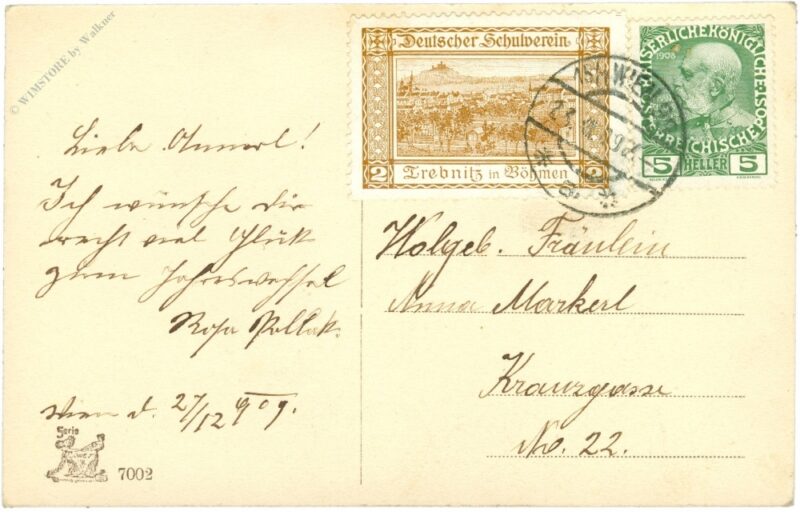 © WIMSTORE by Walkner
Deutscher Schulverein
2 Trebnitz in Böhmen 2
KAISERLICHE KÖNIGLICHE ÖSTERREICHISCHE POST
1908
5 HELLER 5
WIEN
Liebe Annerl!
Ich wünsche dir
recht viel Glük
zum Jahreswechsel
Rosa Pollak.
Wien d. 27/12 909.
Wolgeb. Fräulein
Anna Markerl
Kranzgasse
No. 22.
Serie
7002